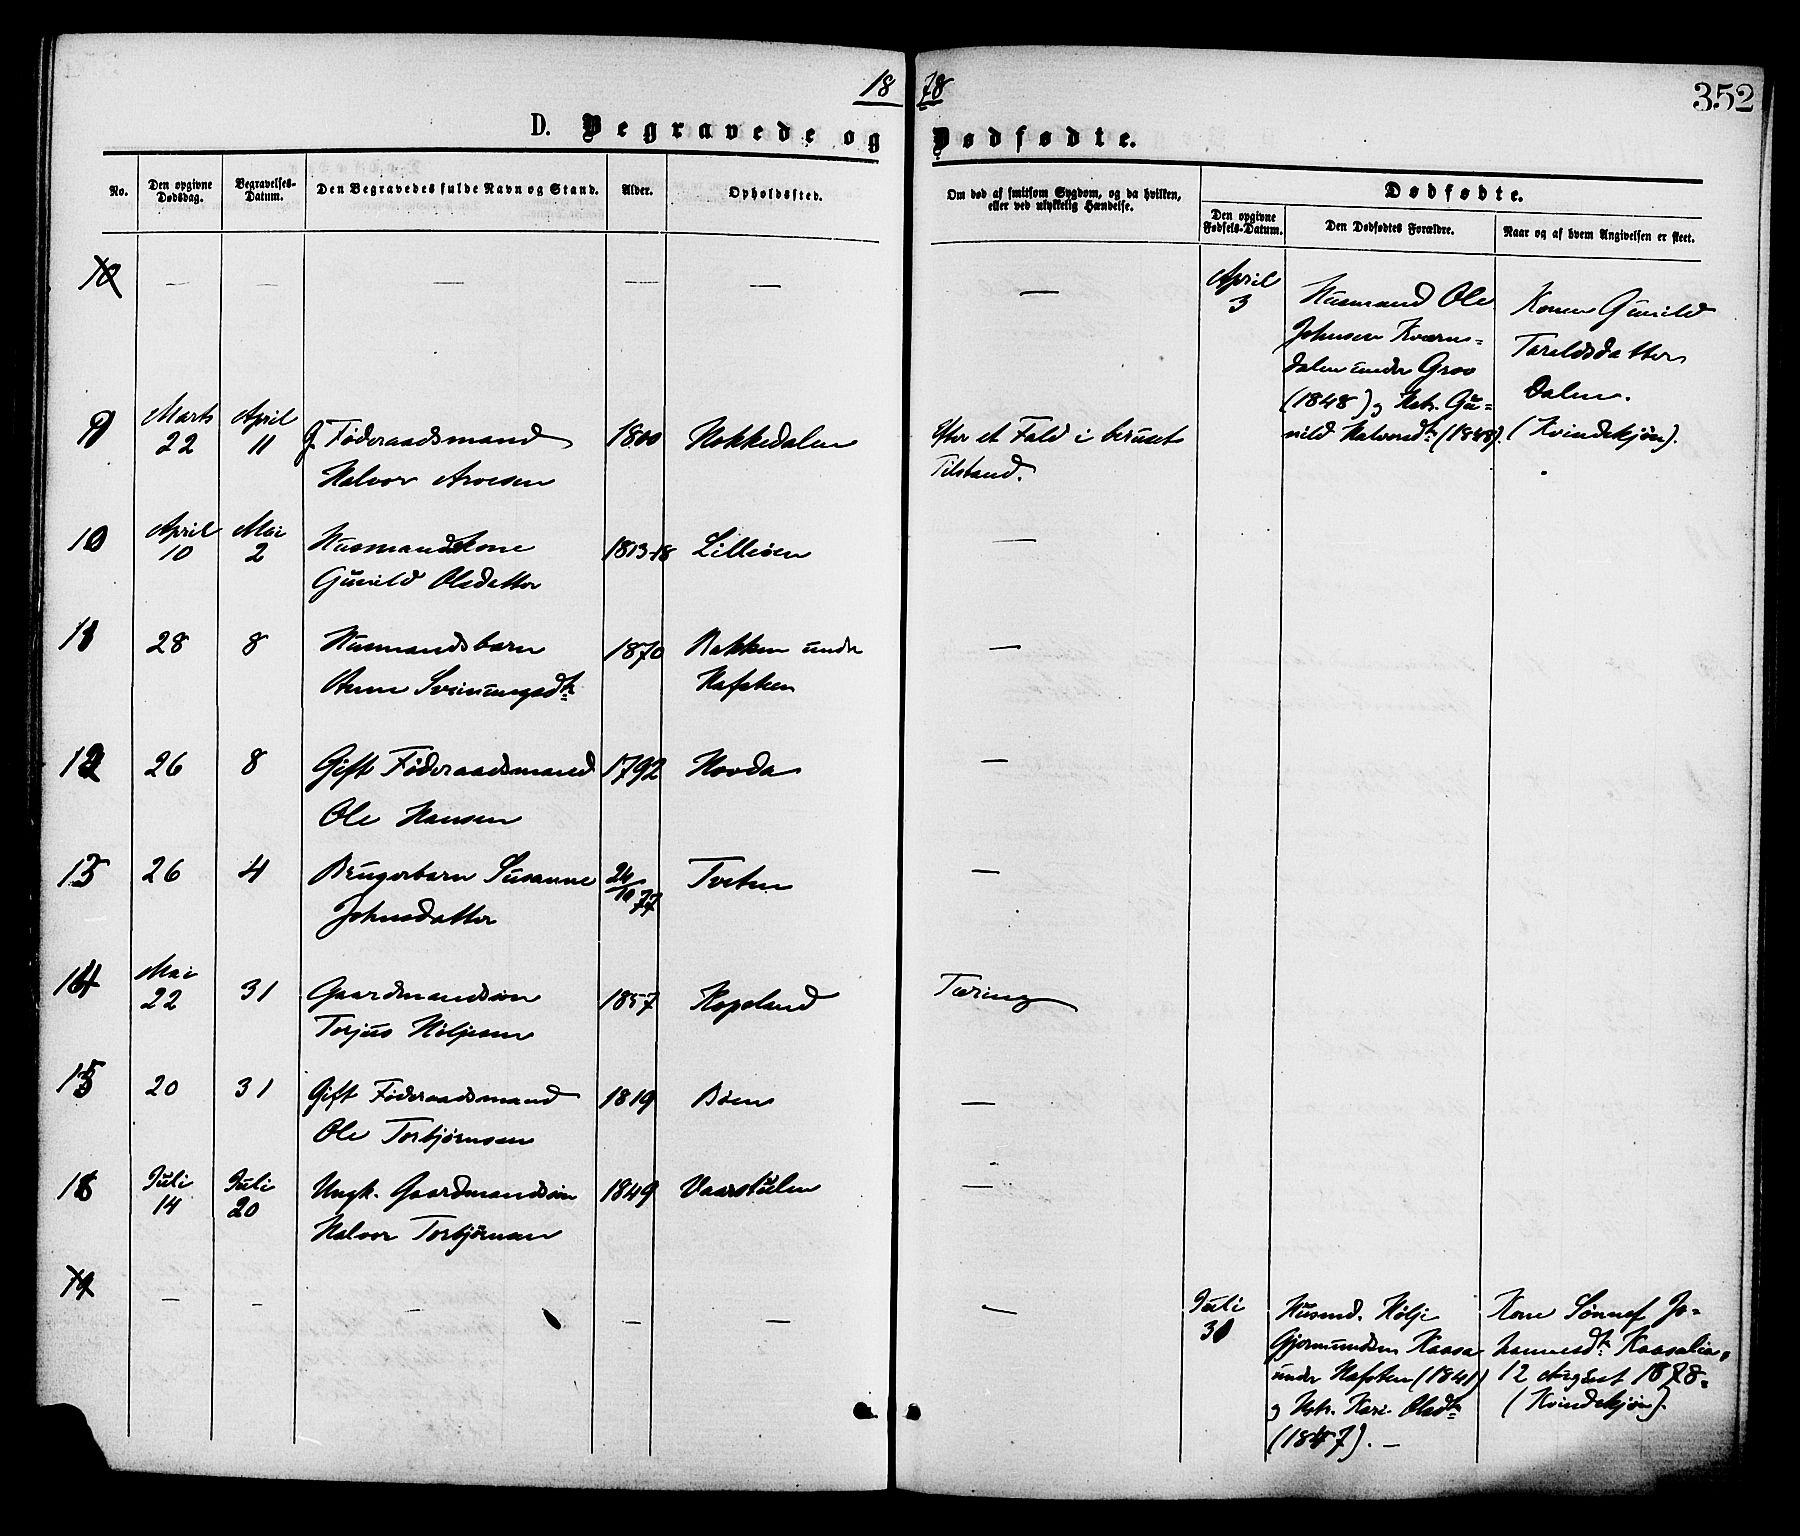 18 78
352
D. Begravede og Dødfødte.
No. Den opgivne Dødsdag. Begravelses-Datum. Den Begravedes fulde Navn og Stand. Alder. Opholdssted. Om død af smitsom Sygdom, og da hvilken, eller ved ulykkelig Hændelse. Dødfødte.
Den opgivne Fødsels-Datum. Den Dødfødtes Forældre. Naar og af hvem Angivelsen er skeet.
— — — — — April 3 Husmand Ole Johnsen Kværndalen under Groo (1848) og Hstr. Gunild Halvorsdt. (1848). Konen Gunild Tareldsdatter Dalen. (Kvindekjøn).
9 Marts 22 April 11 g. Føderaadsmand Halvor Aroesen 1800 Nokkedalen Efter et Fald i beruset Tilstand.
10 April 10 Mai 2 Husmandskone Gunild Olsdatter 1813-18 Lilleøen —
11 28 8 Husmandsbarn Anne Sveinungsdt. 1870 Bakken under Hafsten —
12 26 8 Gift Føderaadsmand Ole Hansen 1792 Hovda —
13 26 4 Brugerbarn Susanne Johnsdatter 24/10 77 Tveten —
14 Mai 22 31 Gaardmandssøn Torjus Høljesen 1857 Kopeland Tæring
15 20 31 Gift Føderaadsmand Ole Torbjørnsen 1819 Bøen —
16 Juli 14 Juli 20 Ungk. Gaardmandssøn Halvor Torbjørnsen 1849 Vaarstulen —
— — — — — — Juli 30 Husmd. Hølje Gjermundsen Kaasa under Hafsten (1841) og Hstr. Kari Olsdt. (1847). — Kone Sønnef Johannesdt. Kaasalia, 12 August 1878. (Kvindekjøn).